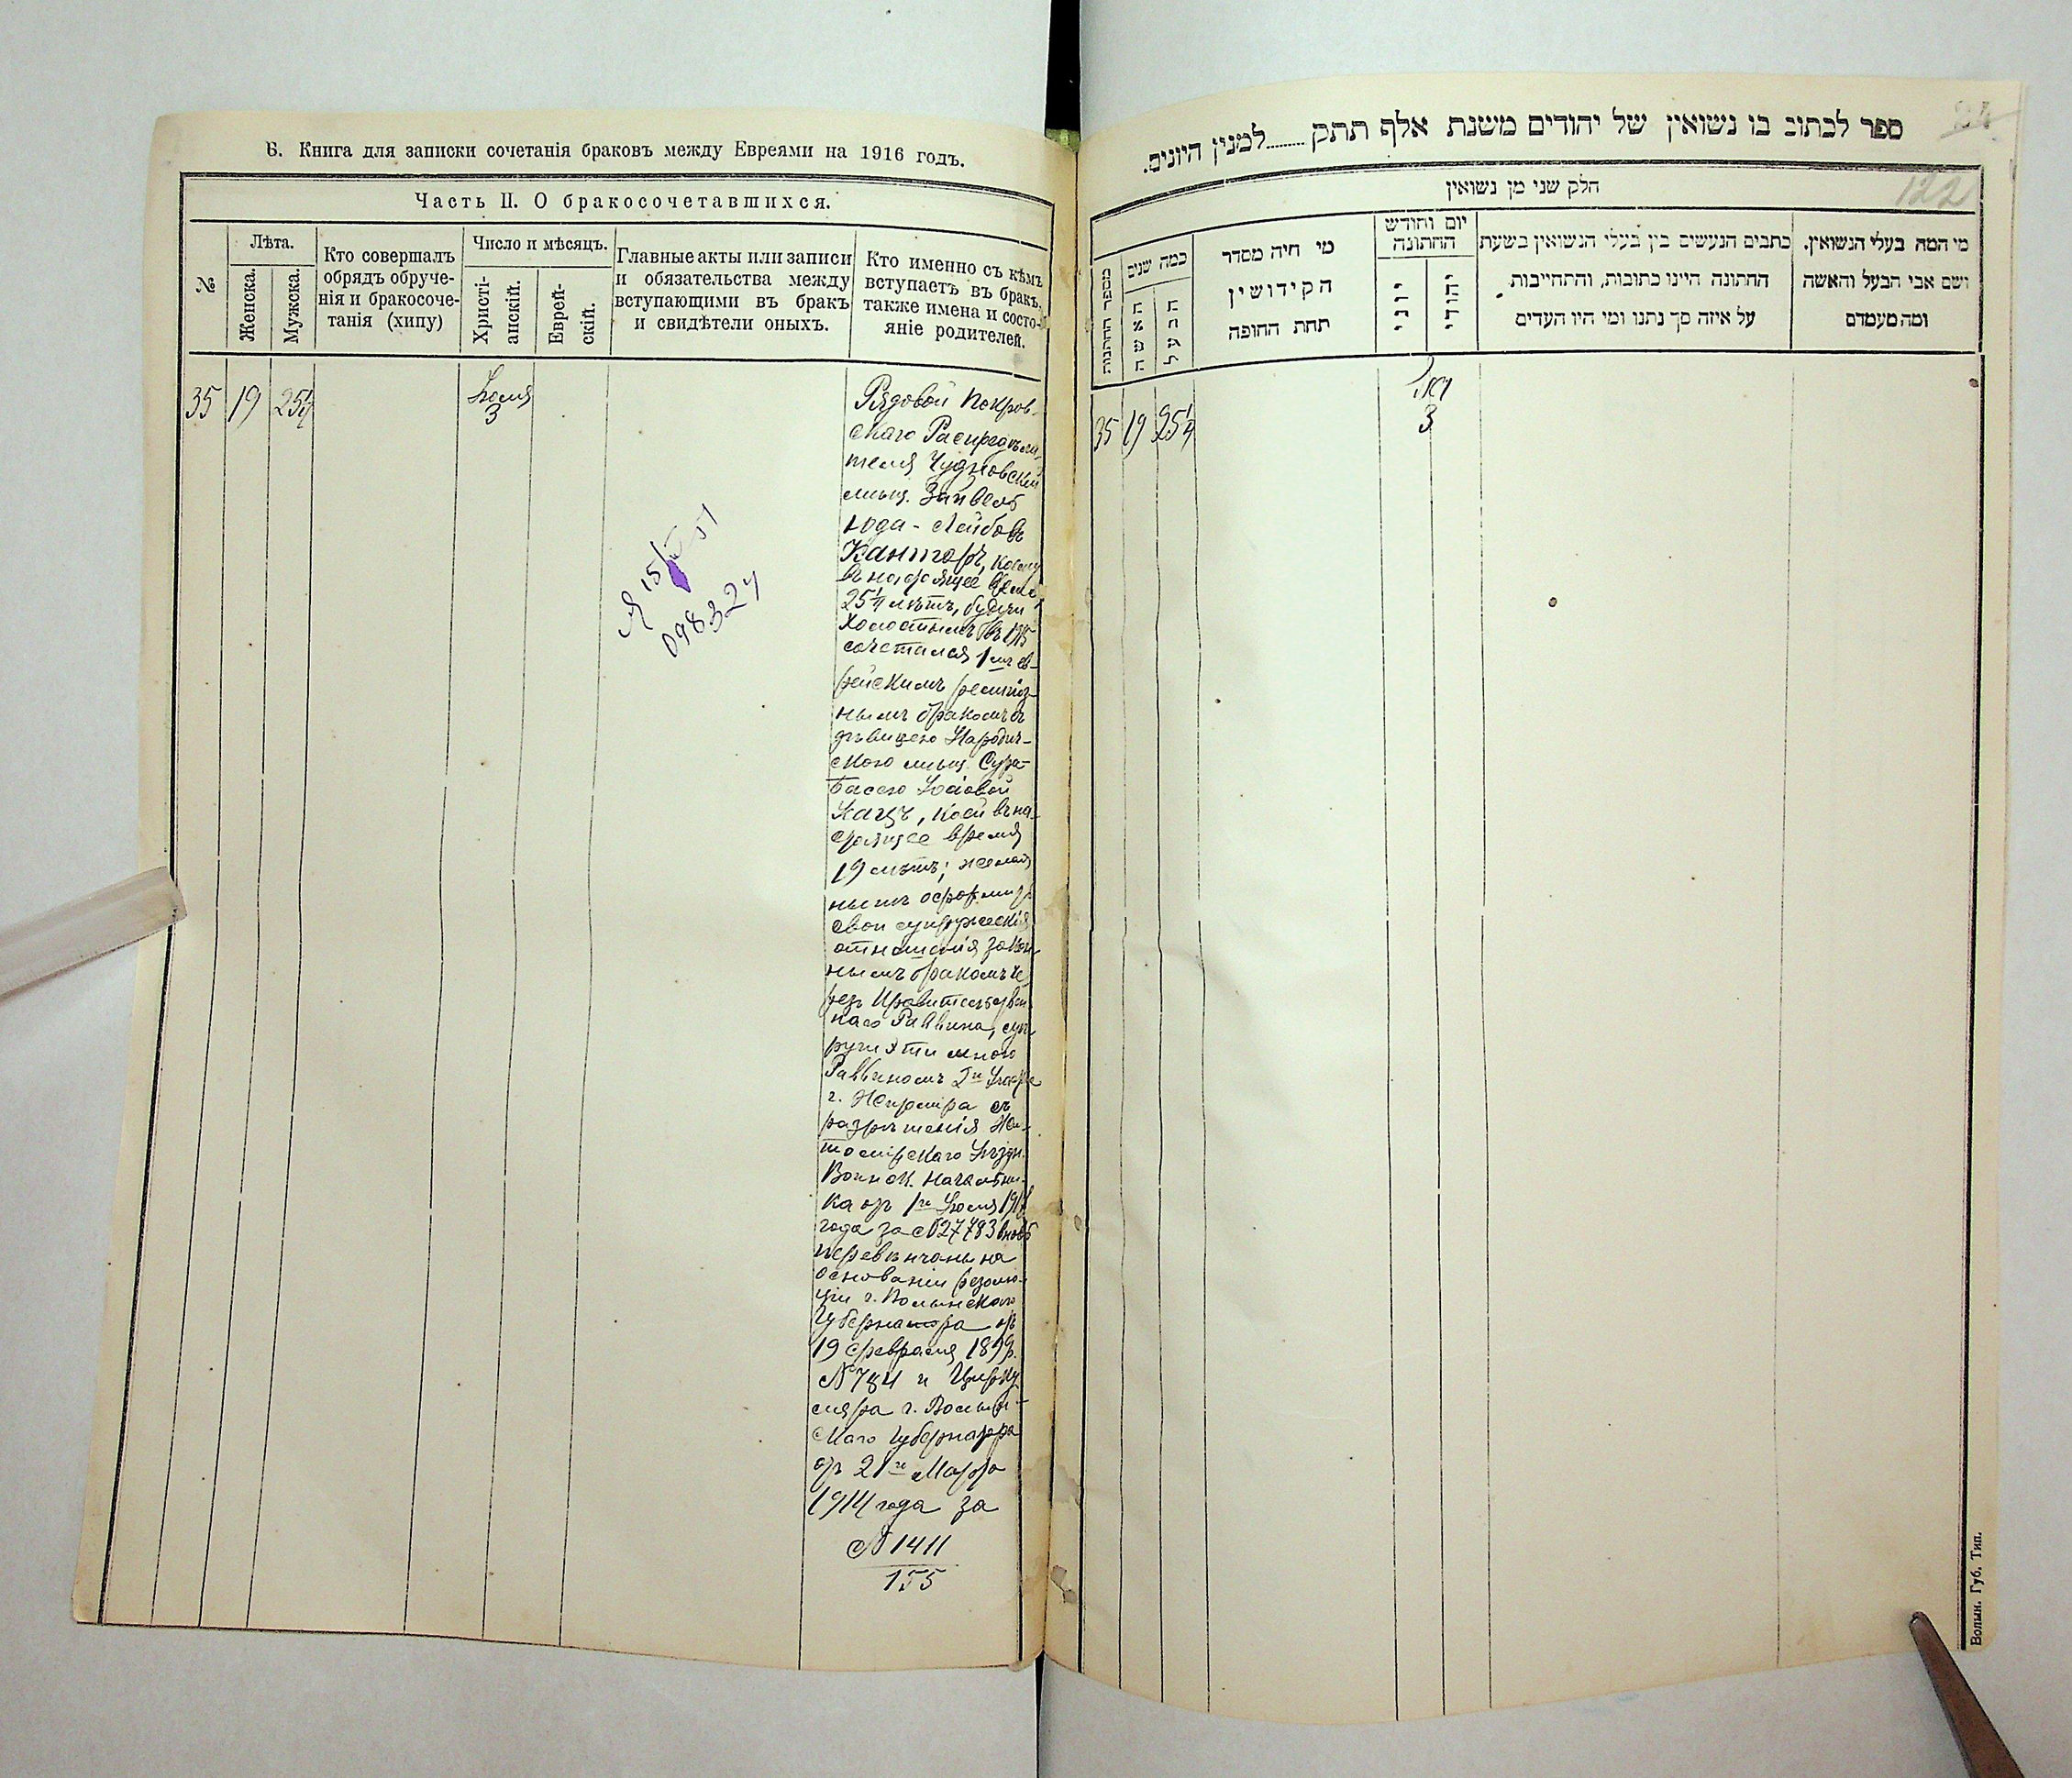 6. Книга для записки сочетанія браковъ между Евреями на 1916 годъ.
Часть II. О бракосочетавшихся.
№
Лѣта.
Женска.
Мужска.
Кто совершалъ
обрядъ обруче-
нія и бракосоче-
танія (хипу)
Число и мѣсяцъ.
Христі-
анскій.
Еврей-
скій.
Главные акты или записи
и обязательства между
вступающими въ бракъ
и свидѣтели оныхъ.
Кто именно съ кѣмъ
вступаетъ въ бракъ,
также имена и состо-
яніе родителей.
35 19 25¼
Іюля
3
Рядовой Покров-
скаго Распредѣли-
теля Чудновскій
мѣщ. Зайвель
Іода-Лейбовъ
Канторъ, коему
въ настоящее время
25¼ лѣтъ, будучи
холостымъ въ 1915
сочетался 1мъ ев-
рейскимъ религіоз-
нымъ бракомъ съ
дѣвицею Народич-
скою мѣщ. Сура-
Басею
Кацъ, коей въ на-
стоящее время
19 лѣтъ; желая
нынѣ оформить
свои супружескія
отношенія закон-
нымъ бракомъ че-
резъ Правительствен-
наго Раввина, суп-
руги эти мною
Раввиномъ 2го Участка
г. Житоміра съ
разрѣшенія Жи-
томірскаго Уѣздн.
Воинск. Начальни-
ка отъ 1го Іюля 1916
года за №27783 вновь
перевѣнчаны на
основаніи резолю-
ціи г. Волынскаго
Губернатора отъ
19 февраля 1899г.
№784 и Цирку-
ляра г. Волын-
скаго Губернатора
отъ 21го Марта
1914 года за
№ 1411
155
098324
ספר לכתוב בו נשואין של יהודים משנת אלף תתק.........למנין היונים.
122
חלק שני מן נשואין
מספר החתנות
כמה שנים
האשה
הבעל
מי היה מסדר
הקידושין
תחת החופה
יום וחודש
החתונה
יוני
יהודי
כתבים הנעשים בין בעלי הנשואין בשעת
החתונה היינו כתובות, והתחייבות
על איזה סך נתנו ומי היו העדים
מי המה בעלי הנשואין.
ושם אבי הבעל והאשה
ומה מעמדם
35 19 25¼
3
Волын. Губ. Тип.